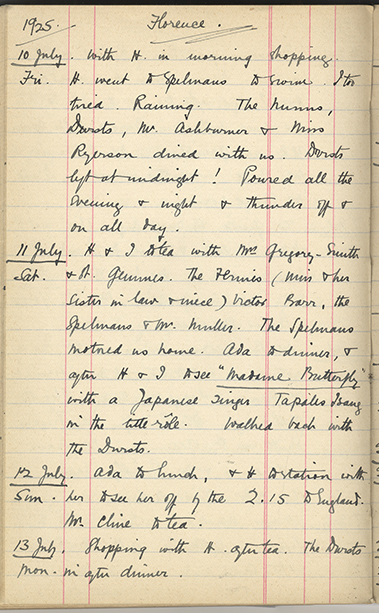 1925. Florence.
10 July. With H. in morning shopping.
Fri. H. went to Spelmans to swim. I too
tired. Raining. The Nunns,
Dursts, Mr. Ashburner & Miss
Ryerson dined with us. Dursts
left at midnight! Poured all the
evening & night & thunder off &
on all day.
11 July. H & I to tea with Mrs Gregory-Smith
Sat. & St. The (Miss & her
sister in law & niece) Victor Barr, the
Spelmans & Mr. Muller. The Spelmans
motored us home. Ada to dinner, &
after H & I to see "Madame Butterfly"
with a Japanese singer
in the title rôle. Walked back with
the Dursts.
12 July. Ada to lunch, & H to station with
Sun. her to see her off by the 2.15 to England.
Mr. Cline to tea.
13 July. Shopping with H. after tea. The Dursts
Mon. in after dinner.